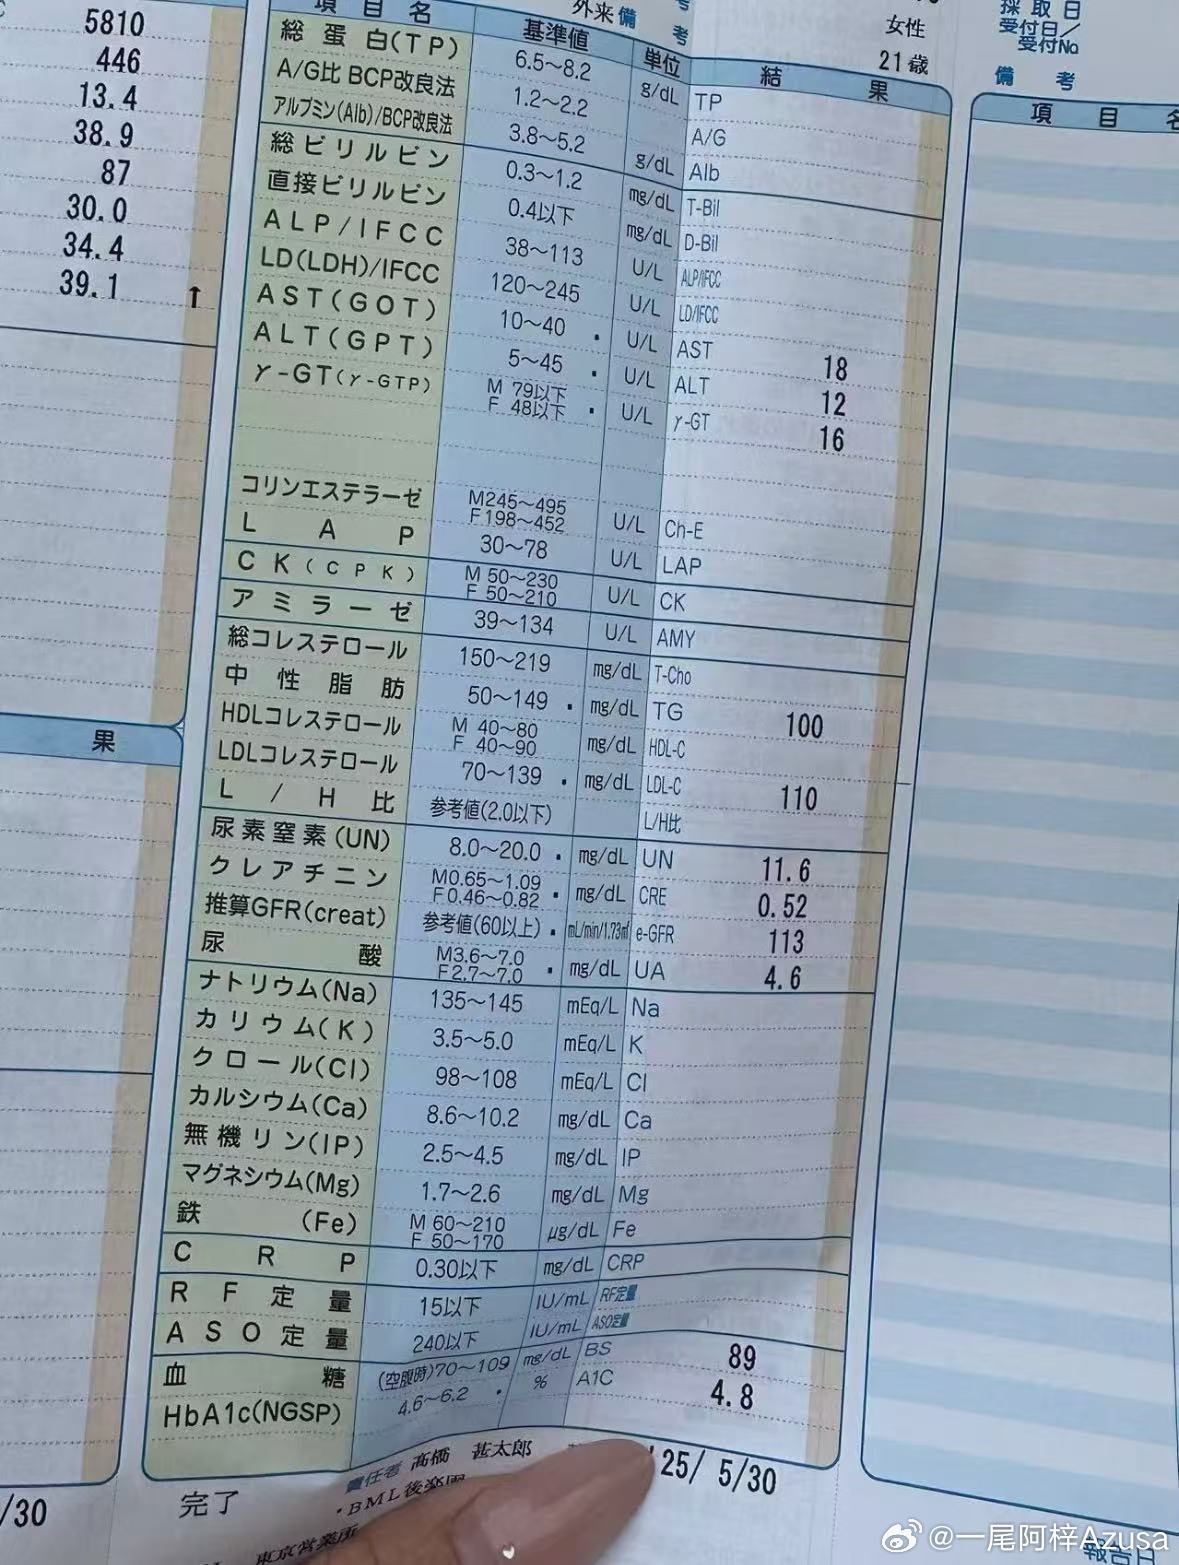 5810
446
13.4
38.9
87
30.0
34.4
39.1 ↑
果
/30
項目名 基準値 単位 結果
外来 備考
女性
21歳
採取日
受付日/
受付No
備考
項目名
総蛋白(TP) 6.5～8.2 g/dL TP
A/G比 BCP改良法 1.2～2.2 A/G
アルブミン(Alb)/BCP改良法 3.8～5.2 g/dL Alb
総ビリルビン 0.3～1.2 mg/dL T-Bil
直接ビリルビン 0.4以下 mg/dL D-Bil
ALP/IFCC 38～113 U/L ALP/IFCC
LD(LDH)/IFCC 120～245 U/L LD/IFCC
AST(GOT) 10～40 ・ U/L AST 18
ALT(GPT) 5～45 ・ U/L ALT 12
γ-GT(γ-GTP) M 79以下 F 48以下 ・ U/L γ-GT 16
コリンエステラーゼ M245～495 F198～452 U/L Ch-E
LAP 30～78 U/L LAP
CK(CPK) M 50～230 F 50～210 U/L CK
アミラーゼ 39～134 U/L AMY
総コレステロール 150～219 mg/dL T-Cho
中性脂肪 50～149 ・ mg/dL TG 100
HDLコレステロール M 40～80 F 40～90 mg/dL HDL-C
LDLコレステロール 70～139 ・ mg/dL LDL-C 110
L/H比 参考値(2.0以下) L/H比
尿素窒素(UN) 8.0～20.0 ・ mg/dL UN 11.6
クレアチニン M0.65～1.09 F0.46～0.82 ・ mg/dL CRE 0.52
推算GFR(creat) 参考値(60以上) ・ mL/min/1.73㎡ e-GFR 113
尿酸 M3.6～7.0 F2.7～7.0 ・ mg/dL UA 4.6
ナトリウム(Na) 135～145 mEq/L Na
カリウム(K) 3.5～5.0 mEq/L K
クロール(Cl) 98～108 mEq/L Cl
カルシウム(Ca) 8.6～10.2 mg/dL Ca
無機リン(IP) 2.5～4.5 mg/dL IP
マグネシウム(Mg) 1.7～2.6 mg/dL Mg
鉄(Fe) M 60～210 F 50～170 μg/dL Fe
CRP 0.30以下 mg/dL CRP
RF定量 15以下 IU/mL RF定量
ASO定量 240以下 IU/mL ASO定量
血糖 (空腹時)70～109 mg/dL BS 89
HbA1c(NGSP) 4.6～6.2 ・ % A1C 4.8
責任者 髙橋 甚太郎
25/ 5/30
完了
・BML後楽園
東京営業所
報告日
@一尾阿梓Azusa